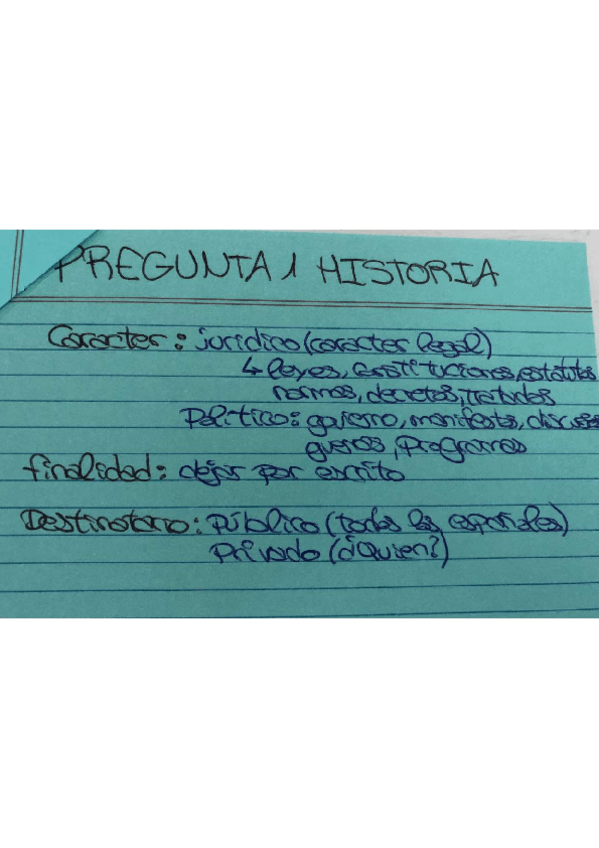 PREGUNTA 1 HISTORIA
Caracter: jurídico (caracter legal)
↳ leyes, constituciones, estatutos
normas, decretos, tratados
Político: gobierno, manifiestos, discursos
guerras, programas
finalidad: dejar por escrito
Destinatario: público (todos los españoles)
Privado (¿Quien?)